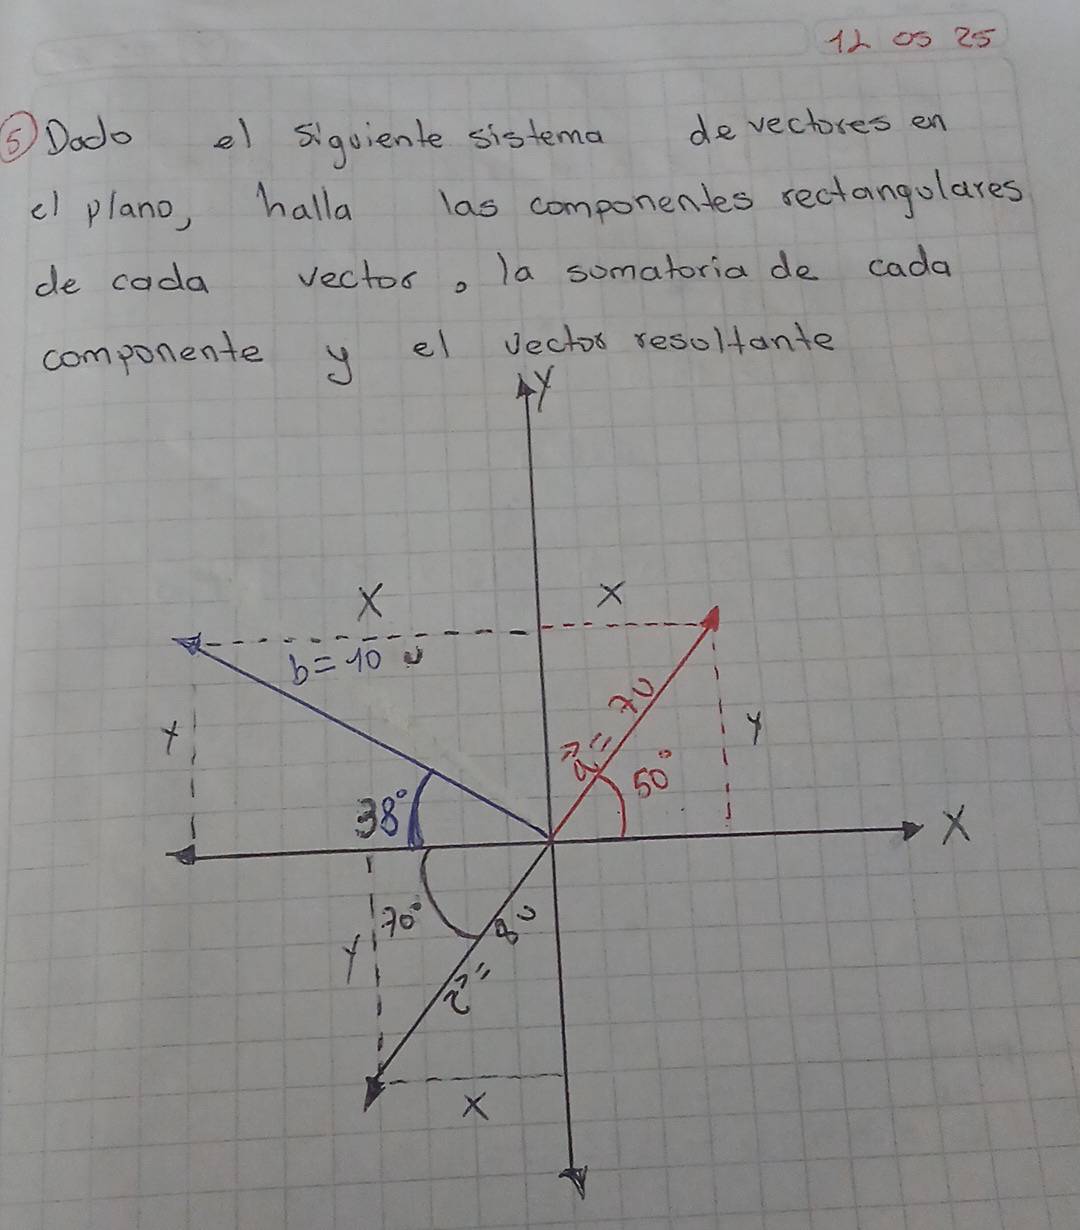 12 05 25
5 Dado el siguiente sistema de vectores en
el plano, halla las componentes rectangulares
de cada vector, la somatoria de cada
componente y el vector resoltante
Y
X
X
b=10 u
a= 7u
Y
Y
50°
38°
X
70°
8u
Y
c=
X